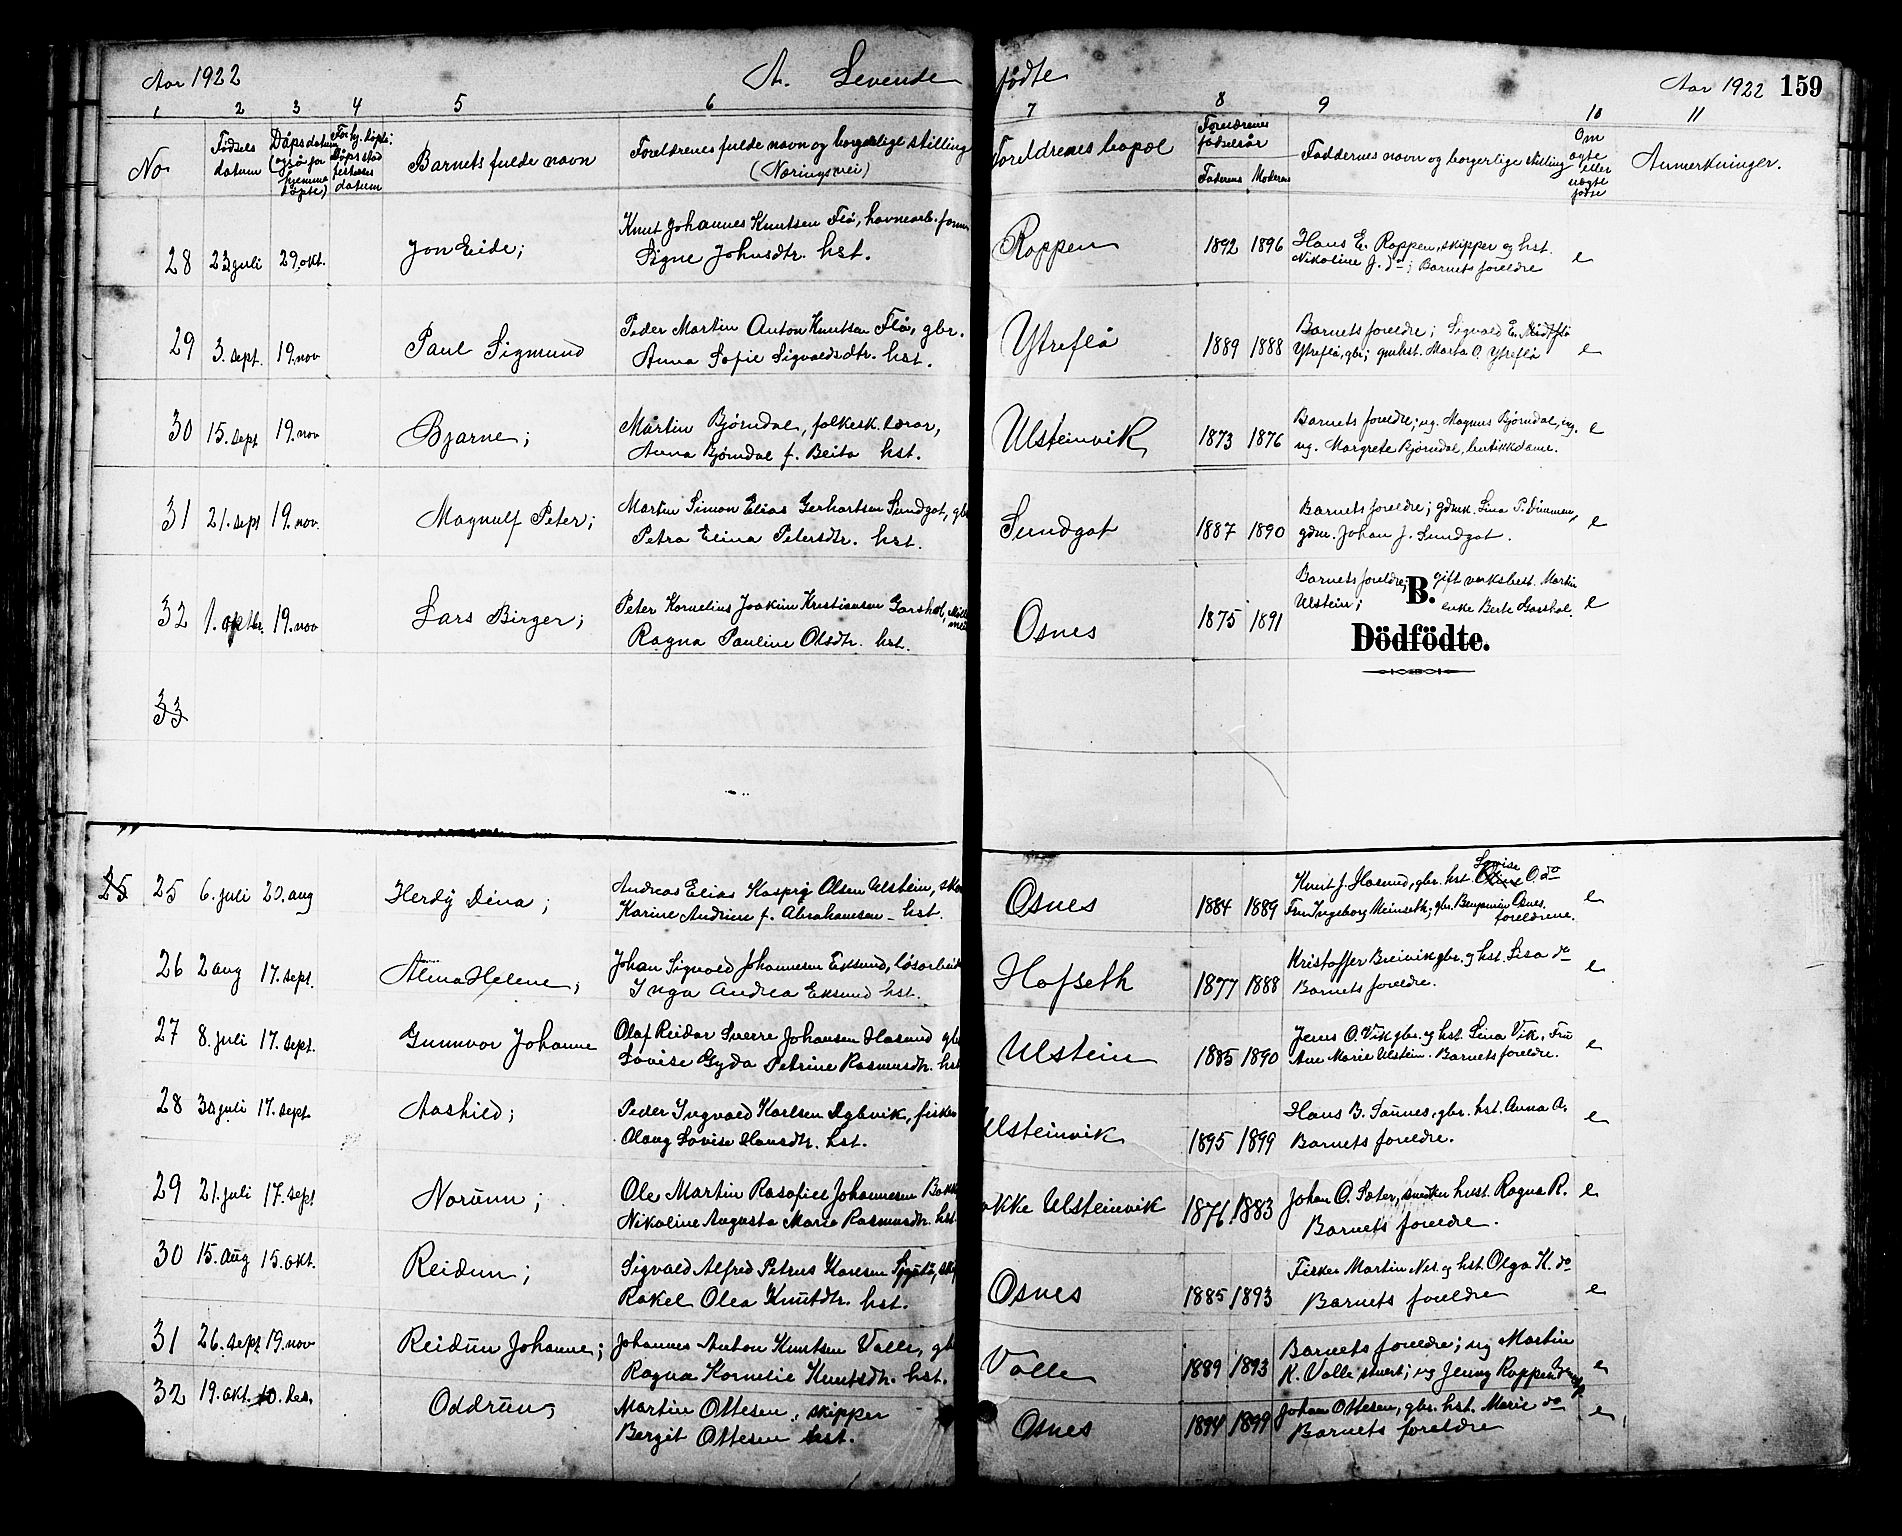 Aar 1922 A. Levende fødte Aar 1922 159
1 2 3 4 5 6 7 8 9 10 11
No Fødsels datum Dåpsdatum (også for hjemme døpte) Barnets fulde navn Foreldrenes fulde navn og borgerligt stilling (Næringsvei) Foreldrenes bopæl Foreldrenes fødselsår Faderens Moderens Faddernes navn og borgerlige stilling Om ægte eller uægte født Anmerkninger.
28 23 juli 29. okt. Jon Eide; Knut Johannes Knutsen Flø, havnearb. form
Signe Johnsdtr. hst. Roppen 1892 1896 Hans E. Roppen, skipper og hst.
Nikoline J. do; Barnets foreldre e
29 3. sept. 19. nov Paul Sigmund Peder Martin Anton Knutsen Flø, gbr.
Anna Sofie Sigvaldsdtr. hst. Ytreflø 1889 1888 Barnets foreldre; Sigvald E.
Ytreflø, gbr; Marta O. Ytreflø e
30 15. sept 19. nov Bjarne; Martin Bjørndal, folkesk. lærar,
Anna Bjørndal f. Beito hst. Ulsteinvik 1873 1876 Barnets foreldre; ug. Magnus Bjørndal, ing.
ug. Margrete Bjørndal, butikkdame. e
31 21. sept 19. nov. Magnulf Peter; Martin Simon Elias Gerhartsen Sundgot, gb
Petra Elina Petersdtr. hst. Sundgot 1887 1890 Barnets foreldre; gdmk. Lina P. Dimmen,
gdm. Johan J. Sundgot. e
32 1. oktbr. 19. nov Lars Birger; Peter Kornelius Joakim Kristiansen Garshol,
Ragna Pauline Olsdtr. hst. Osnes 1875 1891 Barnets foreldre; gift verksbest. Martin
Ulstein; enke Berte Garshol. e
B.
Dödfödte.
33
25 25 6. juli 20. aug Herdy Dina; Andreas Elias Kasper Olsen Ulstein,
Karine Andrine f. Abrahamsen - hst. Osnes 1884 1889 Knut J. Hasund, gbr. hst. Lovise O. do
Fru Ingeborg Meinseth; gbr. Benjamin Osnes.
foreldrene. e
26 2 aug 17. sept. Alma Helene; Johan Sigvald Johannesen Eksund, løsarbeid
Inga Andrea Eksund hst. Hofseth 1877 1888 Kristoffer Breivik gbr. og hst. Lisa do
Barnets foreldre. e
27 8. juli 17. sept. Gunnvor Johanne Olaf Reidar Sverre Johansen Hasund gb
Lovise Gyda Petrine Rasmusdtr. hst Ulstein 1885 1890 Jens O. Vik gbr. og hst. Lina Vik, Fru
Ane Marie Ulstein. Barnets foreldre. e
28 30 juli 17. sept Aashild; Peder Ingvald Karlsen Dybvik, fisker
Olaug Lovise Hansdtr. hst. Ulsteinvik 1895 1899 Hans B. Saunes, gbr. hst. Anna A.
Barnets foreldre. e
29 21. juli 17. sept Norunn; Ole Martin Rasofiel Johannesen Bakk
Nikoline Augusta Marie Rasmusdtr. hst akke Ulsteinvik 1876 1883 Johan O. Sæter, snedker hust. Ragna R.
Barnets foreldre. e
30 15. aug 15. okt. Reidun; Sigvald Alfred Petrus Karlsen
Rakel Olea Knutdtr. hst. Osnes 1885 1893 Fisker Martin Nes. og hst. Olga K. do
Barnets foreldre e
31 26. sept 19. nov Reidun Johanne; Johannes Anton Knutsen Valle, gb
Ragna Kornelie Knutsdtr. hst. Valle 1889 1893 Barnets foreldre; ug Martin
K. Valle stuert; ug Jenny Roppen e
32 19. okt. 10. des. Oddrun; Martin Ottesen, skipper
Bergit Ottesen hst. Osnes 1894 1899 Johan Ottesen, gbr. hst. Marie do
Barnets foreldre e